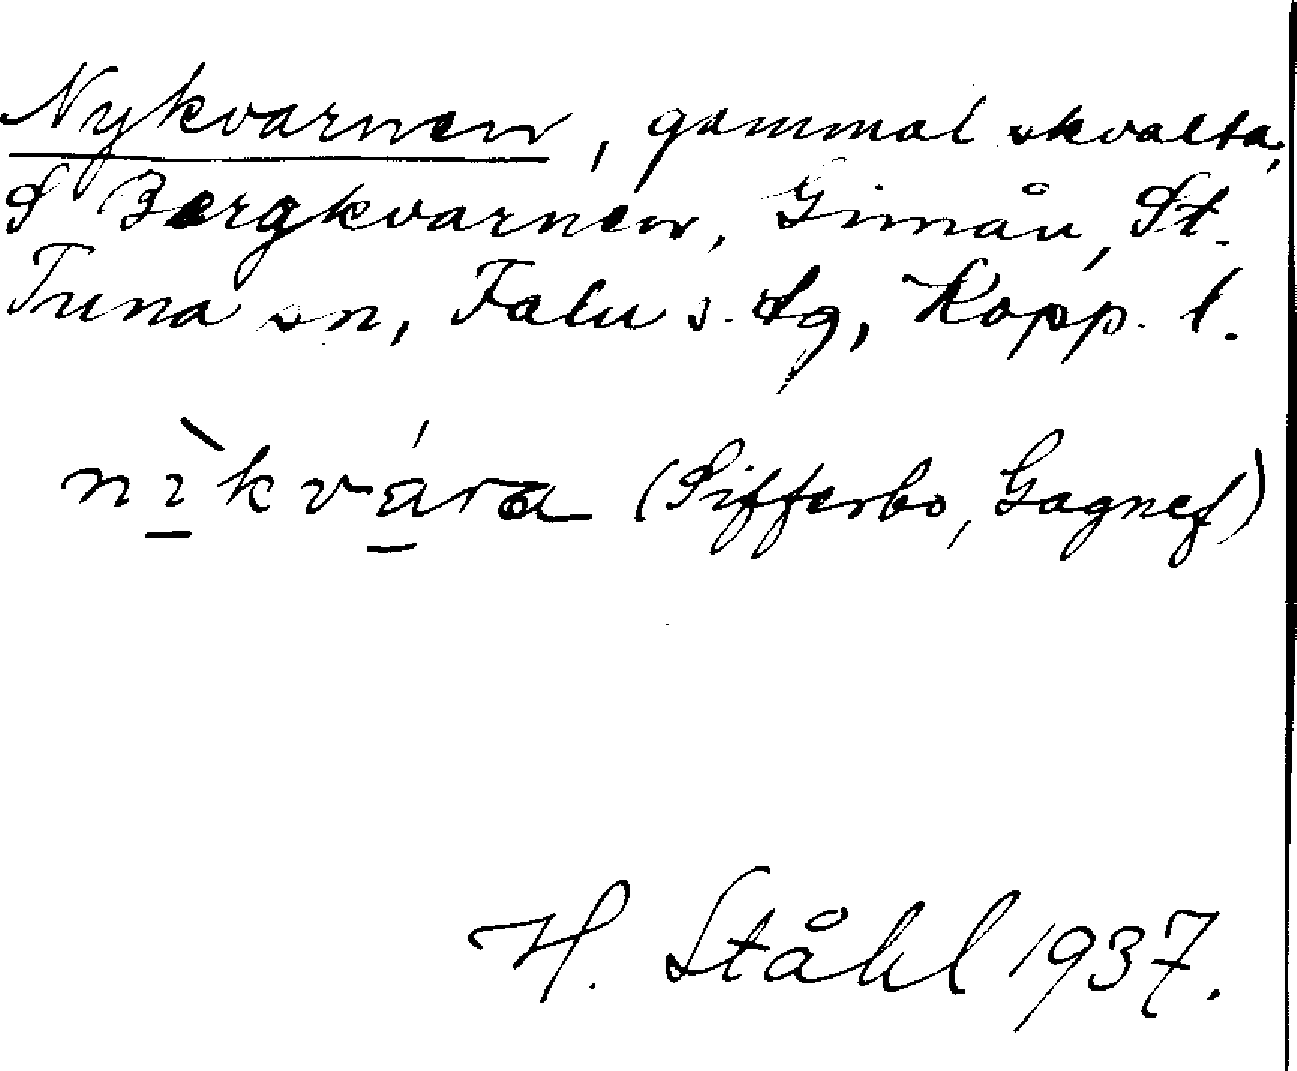 Nykvarnen, gammal skvalta,
S Bergkvarnen, Gimån, St.
Tuna sn, Falu s. tg, Kopp. l.
nı̱̀kvá̱ra (Sifferbo, Gagnef)
H. Ståhl 1937.